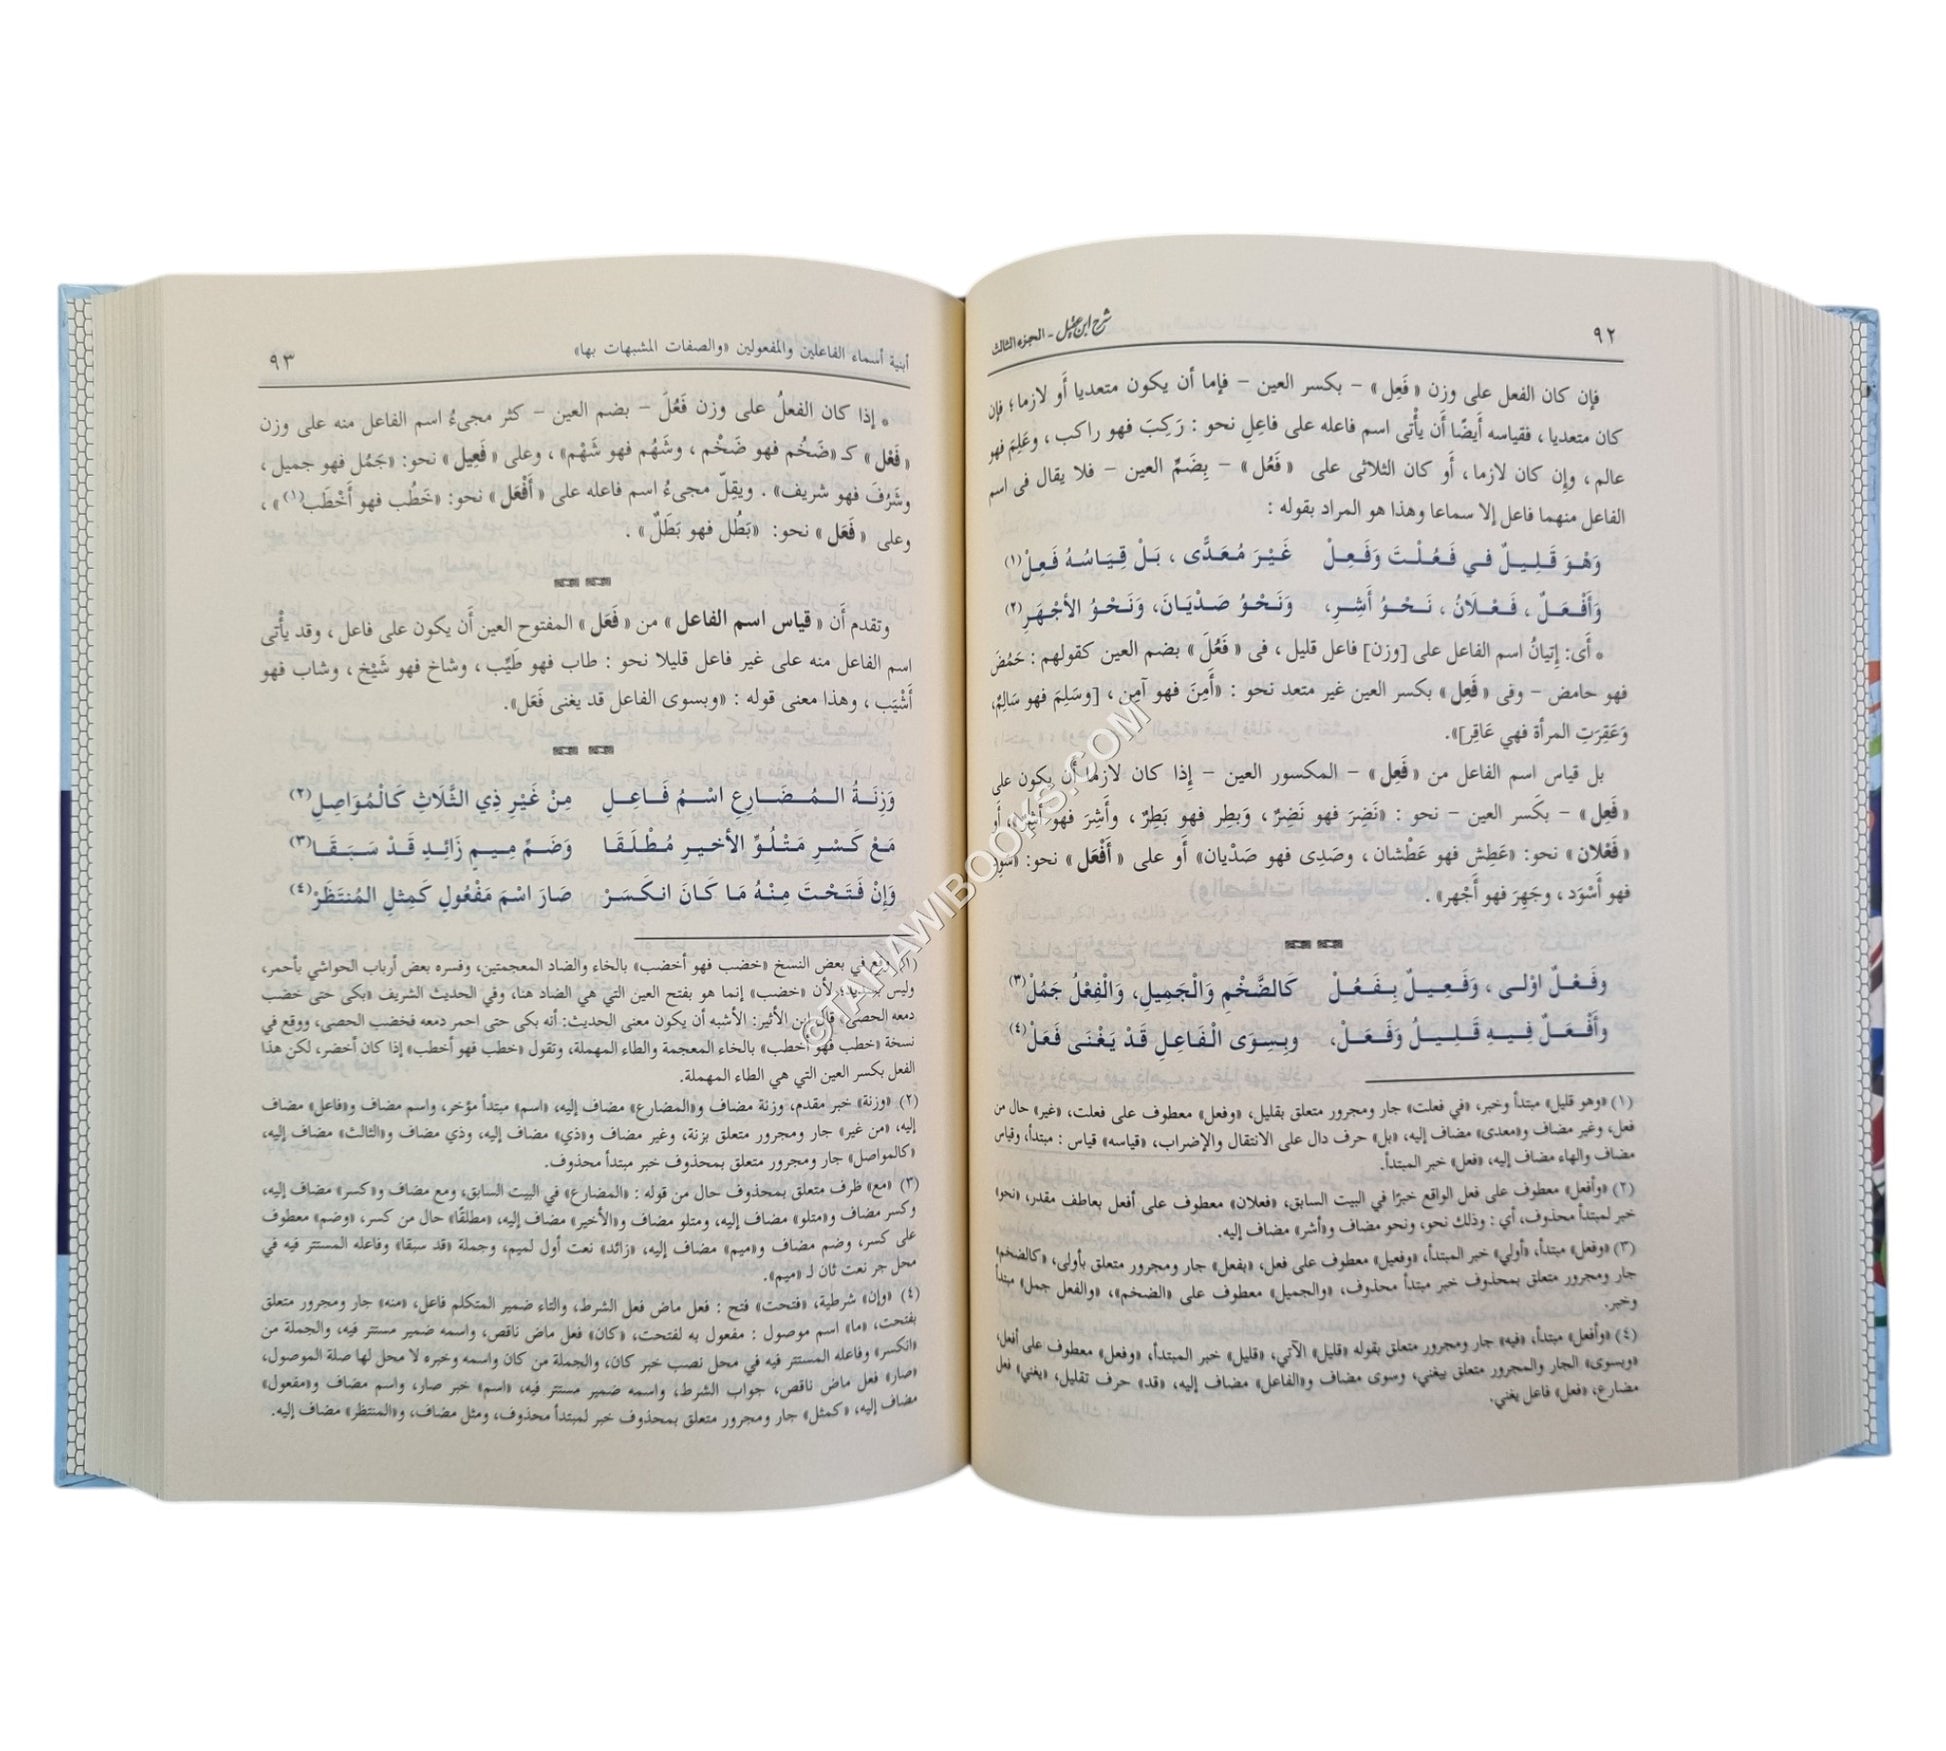 ٩٢
شرح ابن عقيل - الجزء الثالث
فإن كان الفعل على وزن « فَعِل » – بكسر العين – فإما أن يكون متعديا أَو لازما؛ فإن
كان متعديا ، فقياسه أَيضًا أَن يأْتى اسم فاعله على فاعِلٍ نحو : رَكِبَ فهو راكب ، وعَلِمَ فهو
عالم ، وإن كان لازما ، أَو كان الثلاثى على « فَعُل » – بِضَمِّ العين – فلا يقال فى اسم
الفاعل منهما فاعل إلا سماعا وهذا هو المراد بقوله :
وَهْوَ قَلِيلٌ في فَعُلْتَ وَفَعِلْ غَيْرَ مُعَدًّى ، بَلْ قِيَاسُهُ فَعِلْ(١)
وَأَفْعَلٌ ، فَعْلَانُ ، نَحْوُ أَشِرِ، وَنَحْوُ صَدْيَانَ، وَنَحْوُ الأجْهَرِ(٢)
* أَى: إتيانُ اسم الفاعل على [وزن] فاعل قليل ، فى « فَعُلَ » بضم العين كقولهم : حَمُضَ
فهو حامض – وفى « فَعِل » بكسر العين غير متعد نحو : «أَمِنَ فهو آمِن ، [وسَلِمَ فهو سَالِمٌ،
وَعَقِرَتِ المرأة فهي عَاقِر]».
بل قياس اسم الفاعل من « فَعِل » – المكسور العين – إِذا كان لازما أَن يكون على
« فَعِل » – بكَسر العين – نحو : «نَضِرَ فهو نَضِرٌ ، وَبَطِر فهو بَطِرٌ ، وأَشِرَ فهو أَشِرٌ»، أَو
« فَعْلان » نحو: «عَطِش فهو عَطْشان ، وصَدِى فهو صَدْيان» أَو على « أَفْعَل » نحو: «سَوِدَ
فهو أَسْوَد ، وجَهِرَ فهو أَجْهر» .
وفَعْلٌ اوْلى ، وَفَعِيلٌ بِفَعُلْ كَالضَّخْمِ وَالْجَمِيلِ، وَالْفِعْلُ جَمُلْ(٣)
وأَفْعَلٌ فِيهِ قَلِيلٌ وَفَعَلْ، وبِسِوَى الْفَاعِلِ قَدْ يَغْنَى فَعَلْ(٤)
(١) «وهو قليل» مبتدأ وخبر، «في فعلت» جار ومجرور متعلق بقليل، «وفعل» معطوف على فعلت، «غير» حال من
فعل، وغير مضاف و«معدى» مضاف إليه، «بل» حرف دال على الانتقال والإضراب، «قياسه» قياس : مبتدأ، وقياس
مضاف والهاء مضاف إليه، «فعل» خبر المبتدأ.
(٢) «وأفعل» معطوف على فعل الواقع خبرًا في البيت السابق، «فعلان» معطوف على أفعل بعاطف مقدر، «نحو»
خبر لمبتدأ محذوف، أي : وذلك نحو، ونحو مضاف و«أشر» مضاف إليه.
(٣) «وفعل» مبتدأ، «أولي» خبر المبتدأ، «وفعيل» معطوف على فعل، «بفعل» جار ومجرور متعلق بأولى، «كالضخم»
جار ومجرور متعلق بمحذوف خبر مبتدأ محذوف، «والجميل» معطوف على «الضخم»، «والفعل جمل» مبتدأ
وخبر.
(٤) «وأفعل» مبتدأ، «فيه» جار ومجرور متعلق بقوله «قليل» الآتي، «قليل» خبر المبتدأ، «وفعل» معطوف على أفعل،
«وبسوى» الجار والمجرور متعلق بيغني، وسوى مضاف و«الفاعل» مضاف إليه، «قد» حرف تقليل، «يغني» فعل
مضارع، «فعل» فاعل يغني.
أبنية أسماء الفاعلين والمفعولين «والصفات المشبهات بها»
٩٣
* إذا كان الفعلُ على وزن فَعُلَ – بضم العين – كثر مجىءُ اسم الفاعل منه على وزن
« فَعْل » كـ «ضَخُم فهو ضَخْم ، وشَهُم فهو شَهْم» ، وعلى « فَعِيل » نحو: «جَمُل فهو جميل ،
وشَرُفَ فهو شريف» . ويقِلّ مجىءُ اسم فاعله على « أَفْعَل » نحو: «خَطُب فهو أَخْطَب(١)» ،
وعلى « فَعَل » نحو: «بَطُل فهو بَطَلٌ» .
وتقدم أَن « قياس اسم الفاعل » من « فَعَل » المفتوح العين أَن يكون على فاعل ، وقد يأْتى
اسم الفاعل منه على غير فاعل قليلا نحو : طاب فهو طَيِّب ، وشاخ فهو شَيْخ ، وشاب فهو
أَشْيَب ، وهذا معنى قوله : «وبسوى الفاعل قد يغنى فَعَل».
وَزِنَةُ المُضَارِعِ اسْمُ فَاعِلِ مِنْ غَيْرِ ذِي الثَّلَاثِ كَالْمُوَاصِلِ(٢)
مَعْ كَسْرِ مَتْلُوِّ الأخيرِ مُطْلَقَا وَضَمِّ مِيمٍ زَائِدٍ قَدْ سَبَقَا(٣)
وَإِنْ فَتَحْتَ مِنْهُ مَا كَانَ انكَسَرْ صَارَ اسْمَ مَفْعُولٍ كَمِثلِ المُنتَظَرْ(٤)
(١) وقع في بعض النسخ «خضب فهو أخضب» بالخاء والضاد المعجمتين، وفسره بعض أرباب الحواشي بأحمر،
وليس بسديد؛ لأن «خضب» إنما هو بفتح العين التي هي الضاد هنا، وفي الحديث الشريف «بكى حتى خضب
دمعه الحصى» قال ابن الأثير: الأشبه أن يكون معنى الحديث: أنه بكى حتى احمر دمعه فخضب الحصى، ووقع في
نسخة «خطب فهو أخطب» بالخاء المعجمة والطاء المهملة، وتقول «خطب فهو أخطب» إذا كان أخضر، لكن هذا
الفعل بكسر العين التي هي الطاء المهملة.
(٢) «وزنة» خبر مقدم، وزنة مضاف و«المضارع» مضاف إليه، «اسم» مبتدأ مؤخر، واسم مضاف و«فاعل» مضاف
إليه، «من غير» جار ومجرور متعلق بزنة، وغير مضاف و«ذي» مضاف إليه، وذي مضاف و«الثالث» مضاف إليه،
«كالمواصل» جار ومجرور متعلق بمحذوف خبر مبتدأ محذوف.
(٣) «مع» ظرف متعلق بمحذوف حال من قوله : «المضارع» في البيت السابق، ومع مضاف و«كسر» مضاف إليه،
وكسر مضاف و«متلو» مضاف إليه، ومتلو مضاف و«الأخير» مضاف إليه، «مطلقًا» حال من كسر، «وضم» معطوف
على كسر، وضم مضاف و«ميم» مضاف إليه، «زائد» نعت أول لميم، وجملة «قد سبقا» وفاعله المستتر فيه في
محل جر نعت ثان لـ «ميم».
(٤) «وإن» شرطية، «فتحت» فتح : فعل ماض فعل الشرط، والتاء ضمير المتكلم فاعل، «منه» جار ومجرور متعلق
بفتحت، «ما» اسم موصول : مفعول به لفتحت، «كان» فعل ماض ناقص، واسمه ضمير مستتر فيه، والجملة من
«انكسر» وفاعله المستتر فيه في محل نصب خبر كان، والجملة من كان واسمه وخبره لا محل لها صلة الموصول،
«صار» فعل ماض ناقص، جواب الشرط، واسمه ضمير مستتر فيه، «اسم» خبر صار، واسم مضاف و«مفعول»
مضاف إليه، «كمثل» جار ومجرور متعلق بمحذوف خبر لمبتدأ محذوف، ومثل مضاف، و«المنتظر» مضاف إليه.
©TAHAWIBOOKS.COM